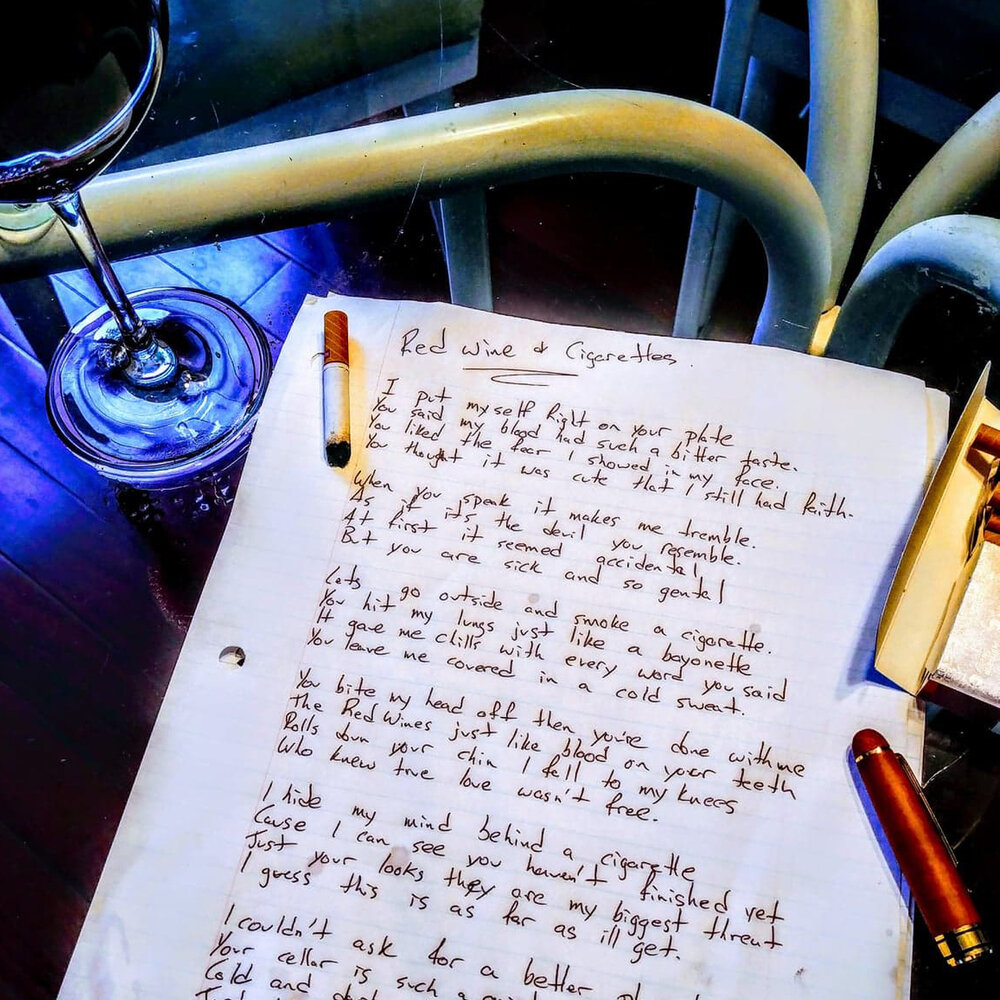 Red Wine & Cigarettes
I put myself Right on your plate
You said my blood had such a bitter taste.
You liked the fear I showed in my face.
You thought it was cute that I still had faith.
When you speak it makes me tremble.
As if it's the devil you resemble.
At first it seemed accidental
But you are sick and so gental
Lets go outside and smoke a cigarette.
You hit my lungs just like a bayonette
It gave me chills with every word you said
You leave me covered in a cold sweat.
You bite my head off then you're done with me
The Red Wines just like blood on your teeth
Rolls down your chin I fall to my knees
Who knew true love wasn't free.
I hide my mind behind a cigarette
Cause I can see you haven't finished yet
Just your looks they are my biggest threat
I guess this is as far as ill get.
I couldn't ask for a better
Your cellar is such a
Cold and